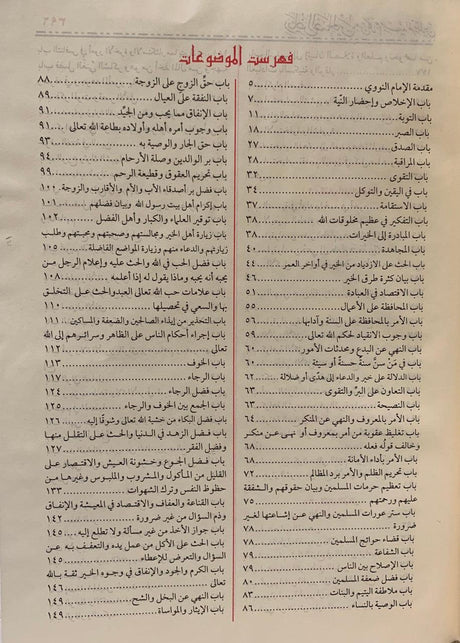 فهرست الموضوعات
مقدمة الإمام النووي ٥
باب الإخلاص وإحضار النية ٧
باب التوبة ١١
باب الصبر ١٨
باب الصدق ٢٧
باب المراقبة ٢٨
باب التقوى ٣٢
باب في اليقين والتوكل ٣٤
باب الاستقامة ٣٧
باب التفكير في عظيم مخلوقات الله ٣٨
باب المبادرة إلى الخيرات ٣٨
باب المجاهدة ٤٠
باب الحث على الازدياد من الخير في أواخر العمر ٤٤
باب بيان كثرة طرق الخير ٤٦
باب الاقتصاد في العبادة ٥١
باب المحافظة على الأعمال ٥٥
باب الأمر بالمحافظة على السنة وآدابها ٥٦
باب وجوب الانقياد لحكم الله تعالى ٥٩
باب النهي عن البدع ومحدثات الأمور ٦٠
باب في مَنْ سنَّ سنةً حسنةً أو سيئة ٦٠
باب الدلالة على خير والدعاء إلى هدًى أو ضلالة ٦٢
باب التعاون على البرِّ والتقوى ٦٣
باب النصيحة ٦٣
باب الأمر بالمعروف والنهي عن المنكر ٦٤
باب تغليظ عقوبة من أمر بمعروف أو نهى عن منكر
وخالف قوله فعله ٦٨
باب الأمر بأداء الأمانة ٦٨
باب تحريم الظلم والأمر برد المظالم ٧٢
باب تعظيم حرمات المسلمين وبيان حقوقهم والشفقة
عليهم ورحمتهم ٧٥
باب ستر عورات المسلمين والنهي عن إشاعتها لغير
ضرورة ٧٨
باب قضاء حوائج المسلمين ٧٨
باب الشفاعة ٧٩
باب الإصلاح بين الناس ٧٩
باب فضل ضعفة المسلمين ٨٠
باب ملاطفة اليتيم والبنات ٨٣
باب الوصية بالنساء ٨٦
باب حقّ الزوج على الزوجة ٨٨
باب النفقة على العيال ٨٩
باب الإنفاق مما يحب ومن الجيِّد ٩١
باب وجوب أمره أهله وأولاده بطاعة الله تعالى ٩١
باب حق الجار والوصية به ٩٣
باب بر الوالدين وصلة الأرحام ٩٤
باب تحريم العقوق وقطيعة الرحم ٩٩
باب فضل بر أصدقاء الأب والأم والأقارب والزوجة ١٠٠
باب إكرام أهل بيت رسول الله وبيان فضلهم ١٠١
باب توقير العلماء والكبار وأهل الفضل ١٠٢
باب زيارة أهل الخير ومجالستهم وصحبتهم ومحبتهم وطلب
زيارتهم والدعاء منهم وزيارة المواضع الفاضلة ١٠٥
باب فضل الحب في الله والحث عليه وإعلام الرجل من
يحبه أنه يحبه وماذا يقول له إذا أعلمه ١٠٨
باب علامات حب الله تعالى العبد والحث على التخلق
بها والسعي في تحصيلها ١١٠
باب التحذير من إيذاء الصالحين والضعفة والمساكين ١١١
باب إجراء أحكام الناس على الظاهر وسرائرهم إلى الله
تعالى ١١٢
باب الخوف ١١٣
باب الرجاء ١١٧
باب فضل الرجاء ١٢٤
باب الجمع بين الخوف والرجاء ١٢٥
باب فضل البكاء من خشية الله تعالى وشوقًا إليه ١٢٦
باب فضل الزهد في الدنيا والحث على التقلل منها
وفضل الفقر ١٢٧
باب فضل الجوع وخشونة العيش والاقتصار على
القليل من المأكول والمشروب والملبوس وغيرها من
حظوظ النفس وترك الشهوات ١٣٣
باب القناعة والعفاف والاقتصاد في المعيشة والإنفاق
وذم السؤال من غير ضرورة ١٤٢
باب جواز الأخذ من غير مسألة ولا تطلع إليه ١٤٥
باب الحث على الأكل من عمل يده والتعفف به عن
السؤال والتعرض للإعطاء ١٤٥
باب الكرم والجود والإنفاق في وجوه الخير ثقة بالله
تعالى ١٤٦
باب النهي عن البخل والشح ١٤٩
باب الإيثار والمواساة ١٤٩